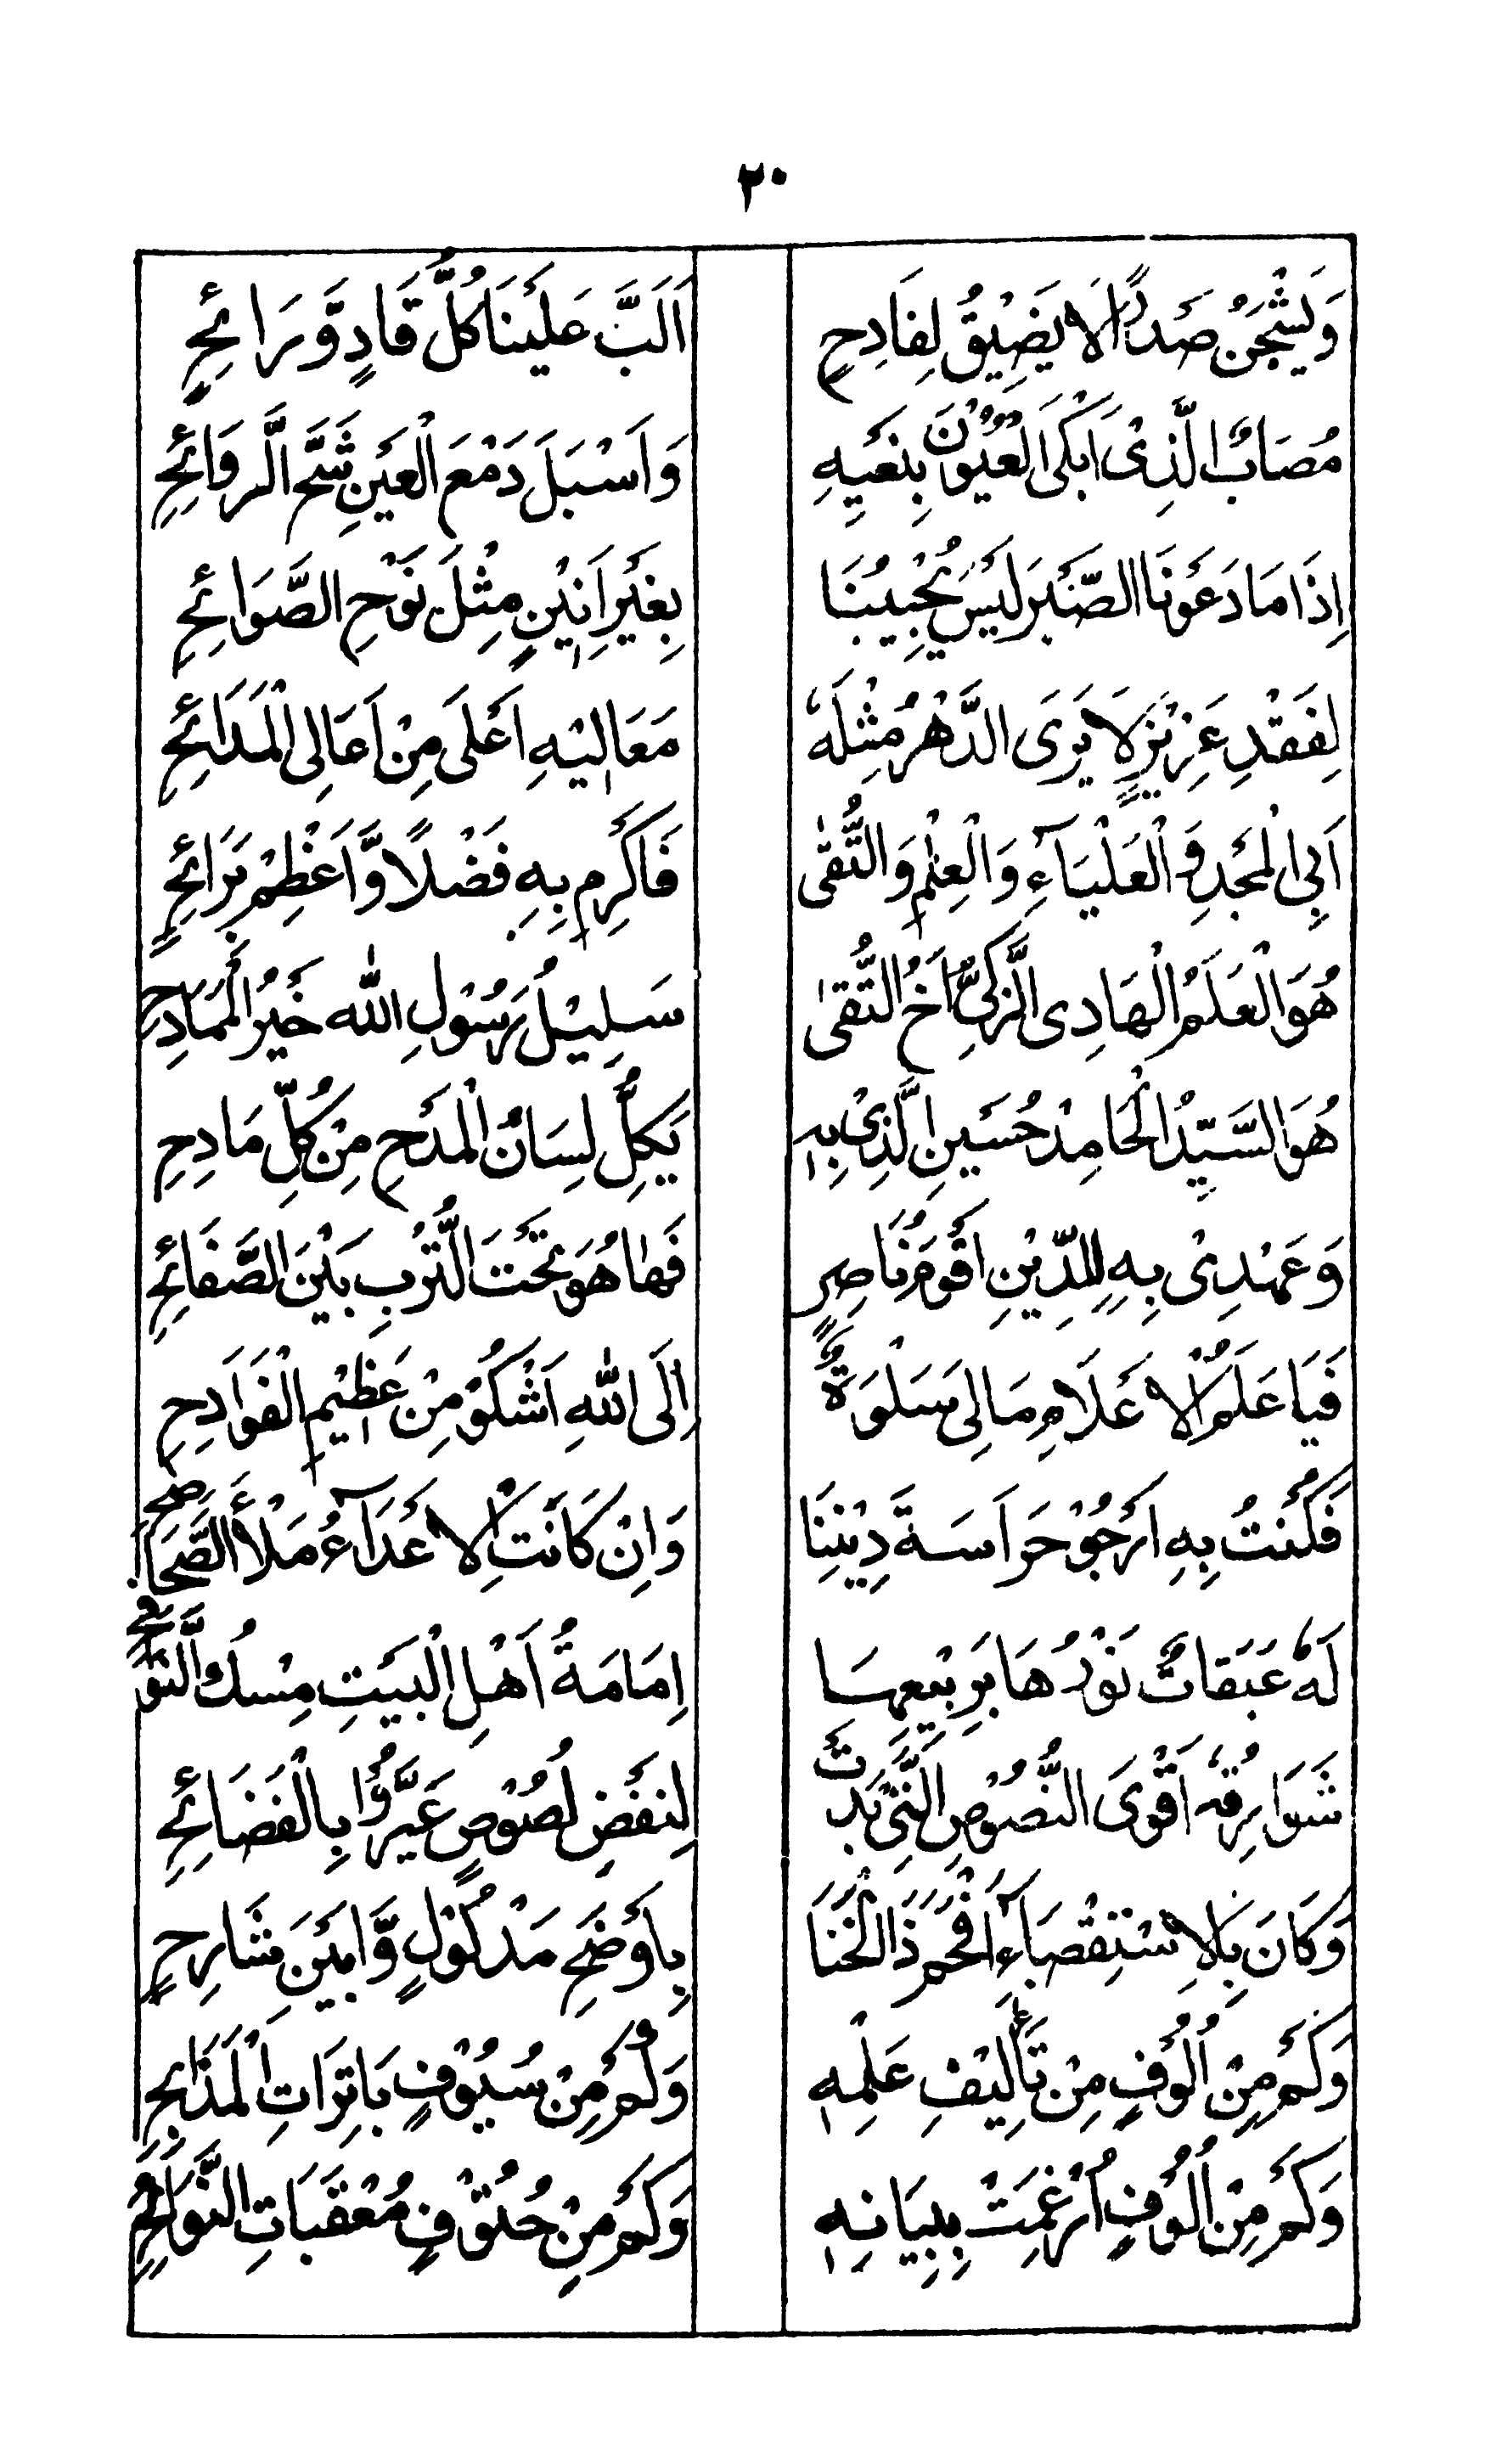 ۲۰
وَيَشْجُنُ صَدْرًا لَا يَضِيْقُ لِفَادِحٍ اَلَبَّ عَلَيْنَا كُلُّ قَادٍ وَّرَائِحٍ
مُصَابُ الَّذِىْ اَبْكَى الْعُيُوْنَ بِنَعْيِهِ وَاَسْبَلَ دَمْعَ الْعَيْنِ سَحَّ الرَوَائِحِ
اِذَا مَا دَعَوْنَا الصَّبْرَ لَيْسَ يُجِيْبُنَا بِغَيْرِ اَنِيْنٍ مِثْلَ نَوْحِ الصَّوَائِحِ
لِفَقْدِ عَزِيْزٍ لَا يَرَى الدَّهْرُ مِثْلَهٗ مَعَالِيْهِ اَعْلَى مِنْ اَعَالِى الْمَدَائِحِ
اَبِى الْمَجْدِ وَ الْعَلْيَآءِ وَ الْعِلْمِ وَ التُّقٰى فَاَكْرِم بِهِ فَضْلًا وَّ اَعْظِمْ بِرَائِحِ
هُوَ الْعَلَمُ الْهَادِى الزَّكِىُّ اَخُ التُّقٰى سَلِيْلُ رَسُوْلِ اللّٰه خَيْرُ الْمَمَادِحِ
هُوَ السَّيِّدُ الْحَامِدْ حُسَيْنِ الَّذِىْ بِهٖ يَكِلُّ لِسَانُ الْمَدْحِ مِنْ كُلِّ مَادِحِ
وَ عَهْدِىْ بِهِ لِلدِّيْنِ اَقْوَمُ نَاصِرٍ فَهَا هُوَ تَحْتَ التُّرْبِ بَيْنَ الصَّفَائِحِ
فَيَا عَلَمَ الْاَعْلَامِ مَالِى سَلْوَةٌ اِلَى اللّٰهِ اَشْكُوْ مِنْ عَظِيْمِ الْفَوَادِحِ
فَكُنْتُ بِهِ اَرْجُوْ حَرَاسَةَ دِيْنِنَا وَاِنْ كَانَتِ الْاَعْدَآءُ مَلْأَ الصَّحَاصِحِ
لَهٗ عَبَقَاتٌ نَوْرُهَا بِرَبِيْعِهَا اِمَامَةُ اَهْلِ الْبَيْتِ مِسْكُ النَّوَافِحِ
شَوَارِقُهٗ اَقْوَى النُّصُوْصِ الَّتِىْ بَدَتْ لِنَقْضِ لُصُوْصٍ عَيَّرُوْا بِالْفَضَائِحِ
وَكَانَ بِالاِسْتِقْصَآءِ اَفْحَمَ ذَا الْخَنَا بِاَوْضَحِ مَدْلُوْلٍ وَّ اَبْيَنِ شَارِحٍ
وَكَمْ مِنْ اُلُوْفٍ مِنْ تَاٰلِيْفِ عَلَمِهٖ وَكَمْ مِنْ سُيُوْفٍ بَاتِرَاتِ الْمَذَابِحِ
وَكَمْ مِنْ اُلُوْفٍ اُرْغِمَتْ بِبَيَانِهٖ وَكَمْ مِنْ حُتُوْفٍ مُعْقَبَاتِ النَّوَائِحِ